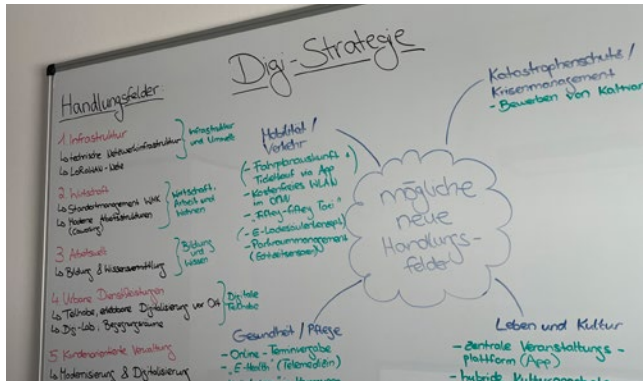 Digi-Strategie
Handlungsfelder:
1 Infrastruktur
↳ technische Netzwerkinfrastruktur
↳ LoRaWAN-Netz
Infrastruktur
und Umwelt
2 Wirtschaft
↳ Standortmanagement
↳ Moderne Arbeitsstrukturen
(Coworking)
Wirtschaft,
Arbeit und
Wohnen
3 Arbeitswelt
↳ Bildung & Wissensvermittlung
Bildung
und
Wissen
4 Urbane Dienstleistungen
↳ Teilhabe, erlebbare Digitalisierung vor Ort
↳ Digi-Lab, Begegnungsräume
Digitale
Teilhabe
5 Kundenorientierte Verwaltung
↳ Modernisierung & Digitalisierung
Mobilität /
Verkehr
(- Fahrplanauskunft +
Ticketkauf via App
- Kostenfreies WLAN
im ÖPNV
- "Fifty-Fifty Taxi"
(- E-Ladesäulenkonzept)
- Parkraummanagement
(Echtzeitsensoren)
mögliche
neue
Handlungs-
felder
Katastrophenschutz /
Krisenmanagement
- Bewerben von
Gesundheit / Pflege
- Online-Terminvergabe
- "E-Health" (Telemedizin)
Leben und Kultur
- zentrale Veranstaltungs-
plattform (App)
- hybride